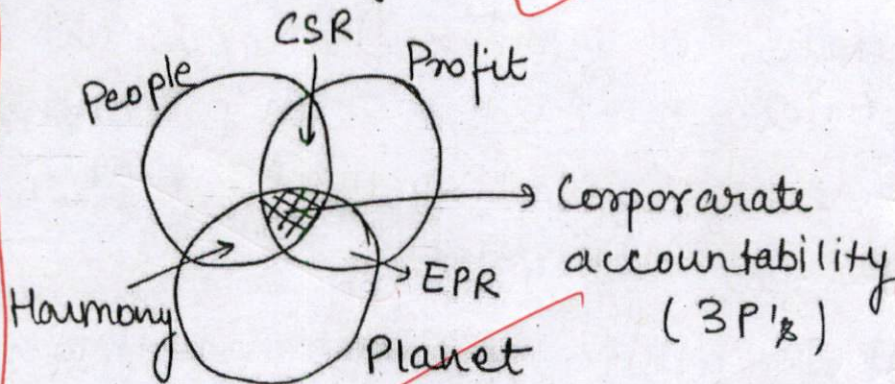 CSR
People
Profit
Corporarate
accountability
(3P's)
EPR
Harmony
Planet